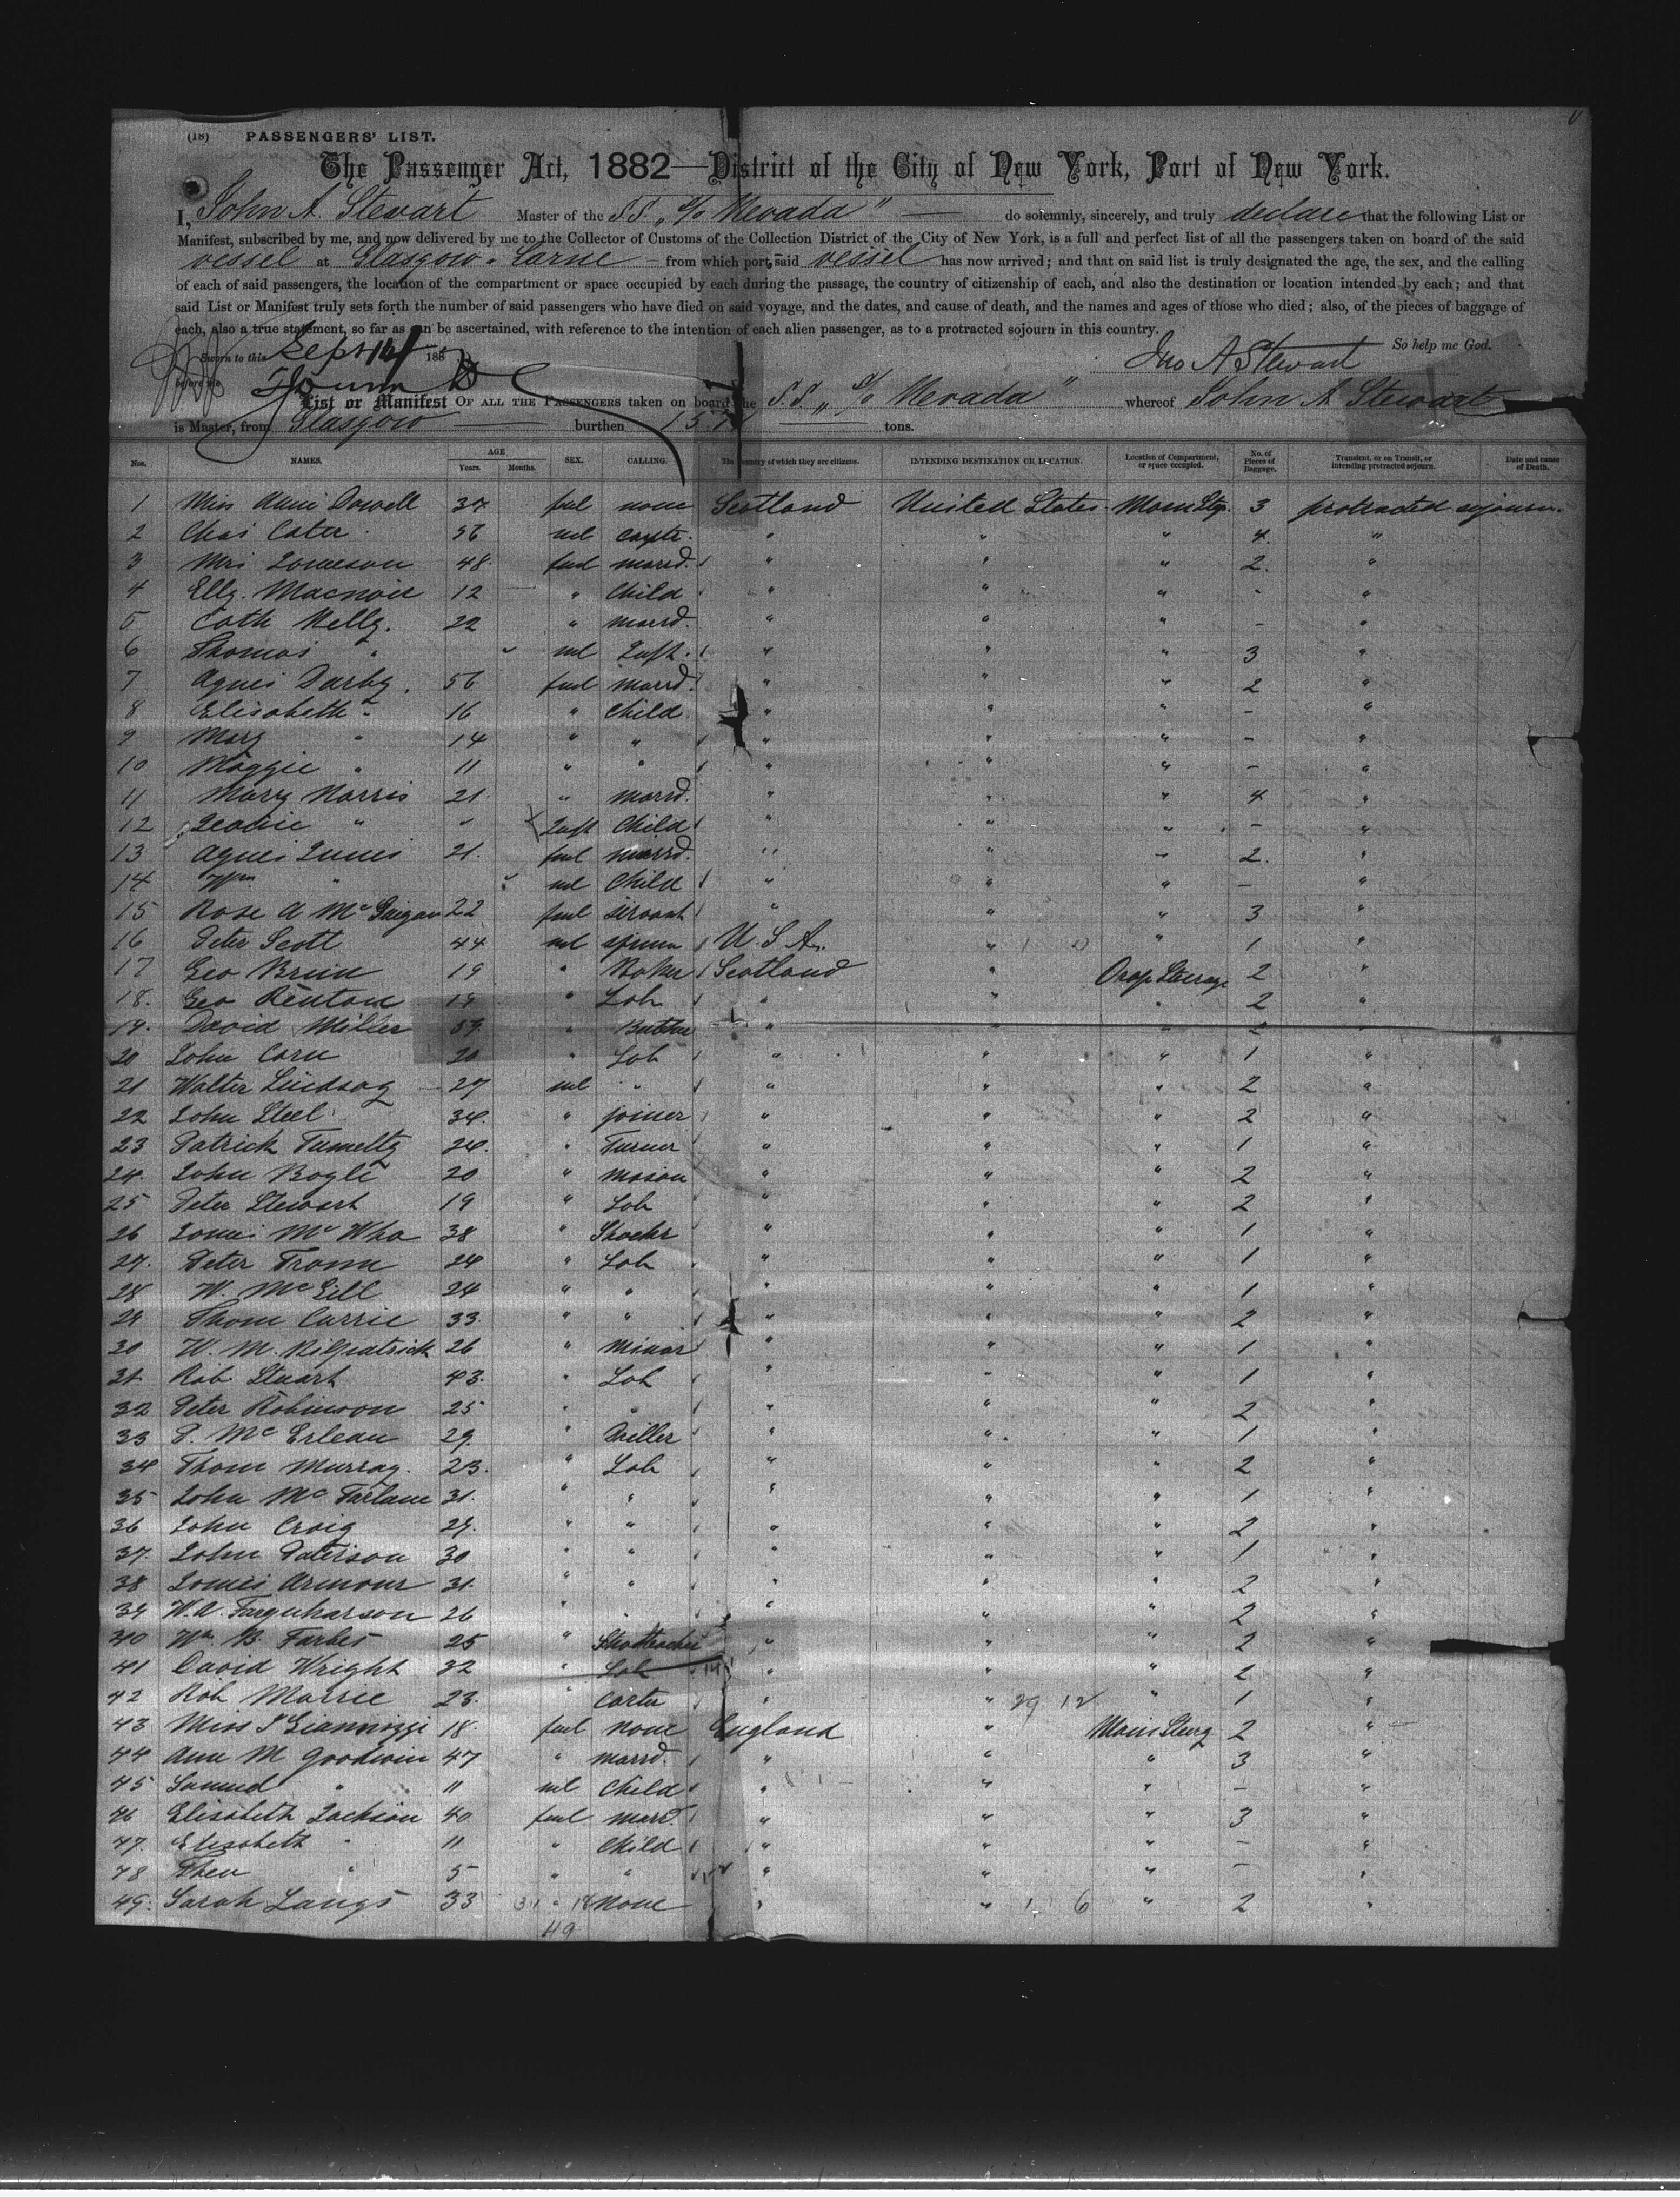 (18) PASSENGERS' LIST.
The Passenger Act, 1882—District of the City of New York, Port of New York.
I, John A. Stewart Master of the SS „S/o Nevada" do solemnly, sincerely, and truly declare that the following List or
Manifest, subscribed by me, and now delivered by me to the Collector of Customs of the Collection District of the City of New York, is a full and perfect list of all the passengers taken on board of the said
vessel at Glasgow & Larne — from which port, said vessel has now arrived; and that on said list is truly designated the age, the sex, and the calling
of each of said passengers, the location of the compartment or space occupied by each during the passage, the country of citizenship of each, and also the destination or location intended by each; and that
said List or Manifest truly sets forth the number of said passengers who have died on said voyage, and the dates, and cause of death, and the names and ages of those who died; also, of the pieces of baggage of
each, also a true statement, so far as can be ascertained, with reference to the intention of each alien passenger, as to a protracted sojourn in this country.
So help me God.
Sworn to this Sept 188
Jno A Stewart
before me
List or Manifest OF ALL THE PASSENGERS taken on board the S.S. „S/o Nevada" whereof John A Stewart
is Master, from Glasgow burthen tons.
Nos. NAMES. AGE Years. Months. SEX. CALLING. The Country of which they are citizens. INTENDING DESTINATION OR LOCATION. Location of Compartment, or space occupied. No. of Pieces of Baggage. Transient, or on Transit, or intending protracted sojourn. Date and cause of Death.
1 Miss Annie Dowell 37 feml none Scotland United States Main Stg. 3 protracted sojourn.
2 Chas Cater 56 ml " " " 4 "
3 Mrs Jameson 48 feml marrd. " " " 2 "
4 Elly. Macnair 12 " Child " " " - "
5 Cath Kelly. 22 " marrd. " " " - "
6 Thomas " ml Inft. " " " 3 "
7 Agnes Darby. 56 feml marrd. " " " 2 "
8 Elisabeth " 16 " Child " " " - "
9 Mary " 14 " " " " " - "
10 Maggie " 11 " " " " " - "
11 Mary Norris 21 " marrd. " " " 4 "
12 " " Inft Child " " " - "
13 Agnes Innes 21 feml marrd. " " " 2 "
14 Wm " ml Child " " " - "
15 Rose A McGuigan 22 feml servant " " " 3 "
16 Peter Scott 44 ml U.S.A. " " 1 "
17 Geo Brim 19 " Baker Scotland " Orop Steerage 2 "
18 Geo Renton 19 " Lab " " " 2 "
19 David Miller " " " " "
20 John Corn 20 " Lab " " " 1 "
21 Walter Lindsay 27 ml " " " " 2 "
22 John Steel 34 " joiner " " " 2 "
23 Patrick Tumelty 24 " Turner " " " 1 "
24 John Bogle 20 " mason " " " 2 "
25 Peter Stewart 19 " Lab " " " 2 "
26 James Mc Wha 38 " " " " 1 "
27 Peter 24 " Lab " " " 1 "
28 W. McGill 24 " " " " " 1 "
29 Thom Currie 33 " " " " " 2 "
30 W. M. Kilpatrick 26 " Minor " " " 1 "
31 Rob Stuart 43 " Lab " " " 1 "
32 Peter Robinson 25 " " " " " 2 "
33 P. McErlean 29 " " " " 1 "
34 Thom Murray. 23 " Lab " " " 2 "
35 John McFarlane 31 " " " " " 1 "
36 John Craig 27 " " " " " 2 "
37 John Paterson 30 " " " " " 1 "
38 James Armour 31 " " " " " 2 "
39 W.A. Farquharson 26 " " " " " 2 "
40 Wm. B. Forbes 25 " " " " 2 "
41 David Wright 32 " Lab " " " 2 "
42 Rob Morrie 23 " Carter " " 29 12 " 1 "
43 Miss 18 feml None England " Main Sterg 2 "
44 Ann M Goodwin 47 " marrd. " " " 3 "
45 Samuel " 11 ml Child " " " - "
46 Elisabeth Jackson 40 feml marrd. " " " 3 "
47 Elisabeth " 11 " Child " " " - "
48 " 5 " " " " " - "
49 Sarah Langs 33 31 " 18 None " " 1 6 " 2 "
49